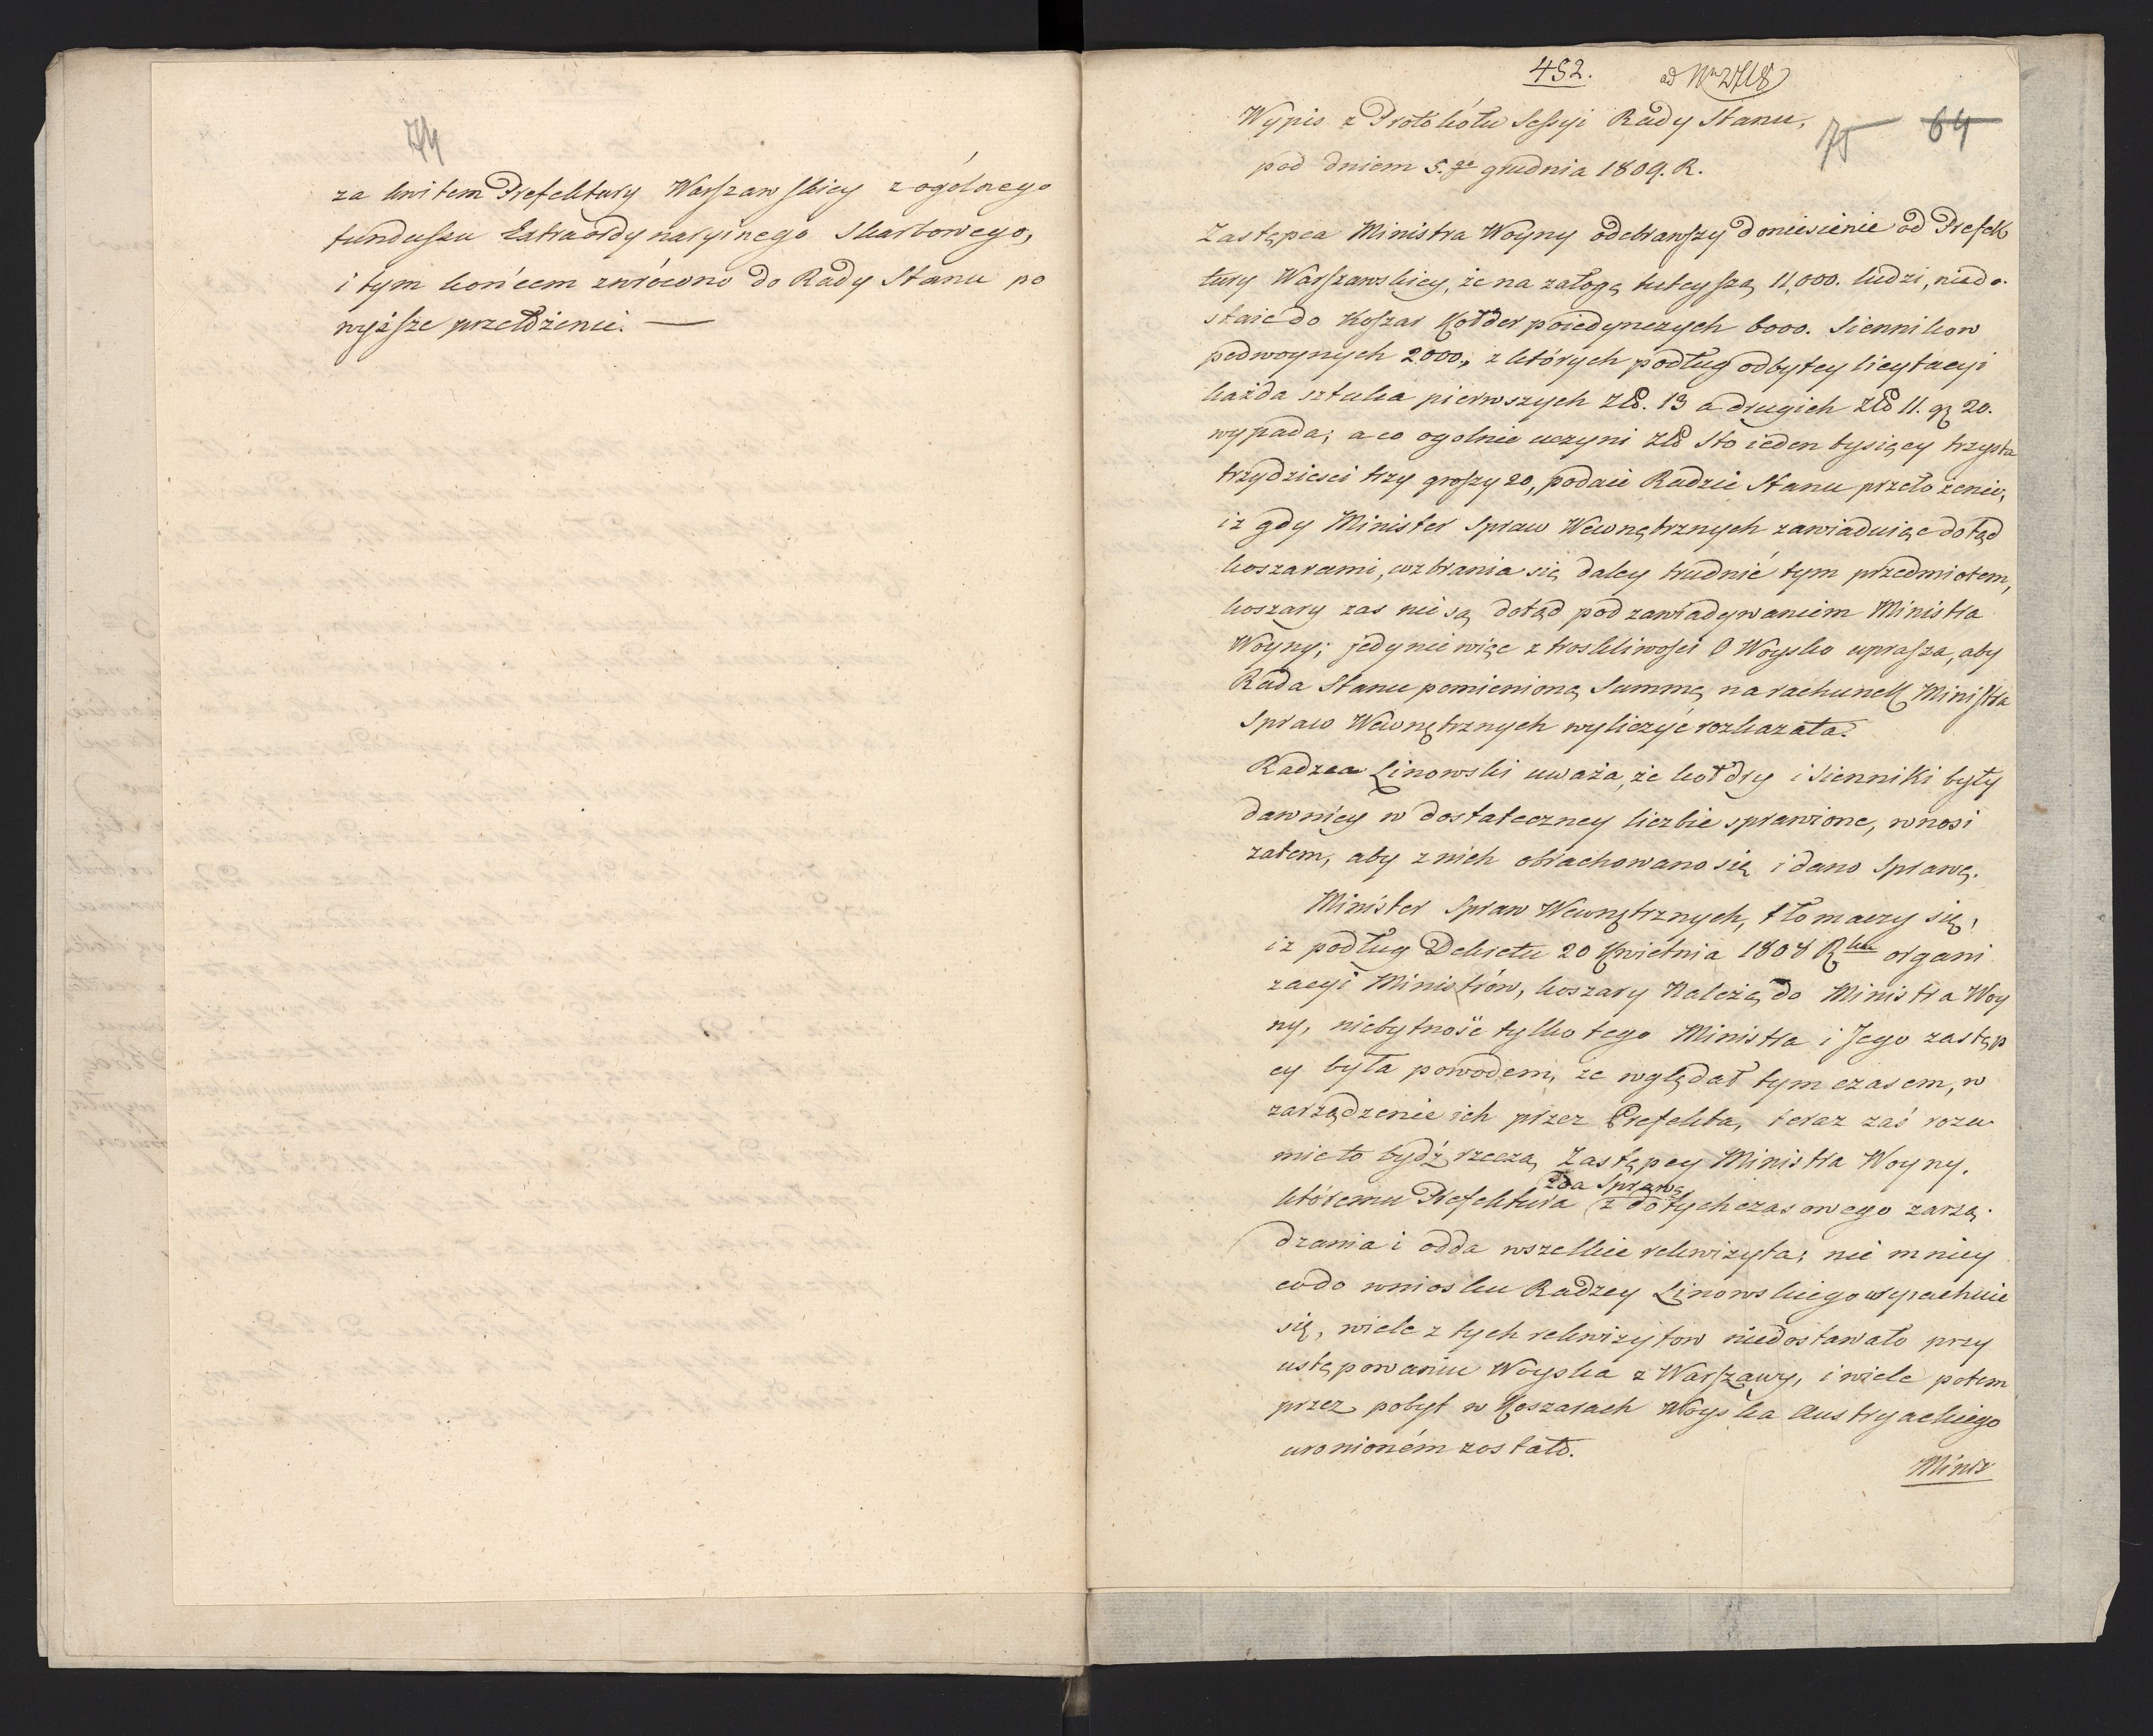 74
za kwitem Prefektury Warszawskiey z ogólnego
funduszu Extraordynaryinego Skarbowego,
i tym końcem zwrócono do Rady Stanu po
wyższe przełożenie. —
452. ad Nrm 2718
Wypis z Protokółu Sessyi Rady Stanu,
75 64
pod dniem 5.go grudnia 1809. R.
Zastępca Ministra Woyny odebrawszy doniesienie od Prefek
tury Warszawskiey, że na załogę tuteyszą 11,000. ludzi, niedo-
staie do Koszar Kołder poiedynczych 6000. Siennikow
podwoynych 2000., z których podług odbytey licytacyi
każda sztuka pierwszych Zł. 13 a drugich Zł 11. gr 20.
wypada; a co ogolnie uczyni Zł Sto ieden tysięcy trzysta
trzydziesci trzy groszy 20, podaie Radzie Stanu przełożenie,
iz gdy Minister Spraw Wewnętrznych zawiaduiąc dotąd
koszarami, wzbrania się daley trudnić tym przedmiotem,
koszary zas nie są dotąd pod zawiadywaniem Ministra
Woyny; jedynie więc z troskliwości O Woysko uprasza, aby
Rada Stanu pomienioną Summę na rachunek Ministra
Spraw Wewnętrznych wyliczyć rozkazała.
Radzca Linowski uważa, że kołdry i Sienniki były
dawniey w dostateczney liczbie sprawione, wnosi
zatem, aby z nich obrachowano się i dano Sprawę.
Minister Spraw Wewnętrznych, tłomaczy się,
iz podług Dekretu 20 Kwietnia 1808 Rku organi
zacyi Ministrów, koszary Należą do Ministra Woy
ny, niebytność tylko tego Ministra i Jego zastęp
cy była powodem, ze wglądał tymczasem, w
zarządzenie ich przez Prefekta, teraz zaś rozu
mie to bydź rzeczą Zastępcy Ministra Woyny,
zda Sprawę
któremu Prefektura z dotychczasowego zarzą-
dzania i odda wszelkie rekwizyta; nie mniey
co do wniosku Radzcy Linowskiego wyrachuie
się, wiele z tych rekwizytow niedostawało przy
ustępowaniu Woyska z Warszawy, i wiele potem
przez pobyt w Koszarach Woyska Austryackiego
uronioném zostało.
Minis